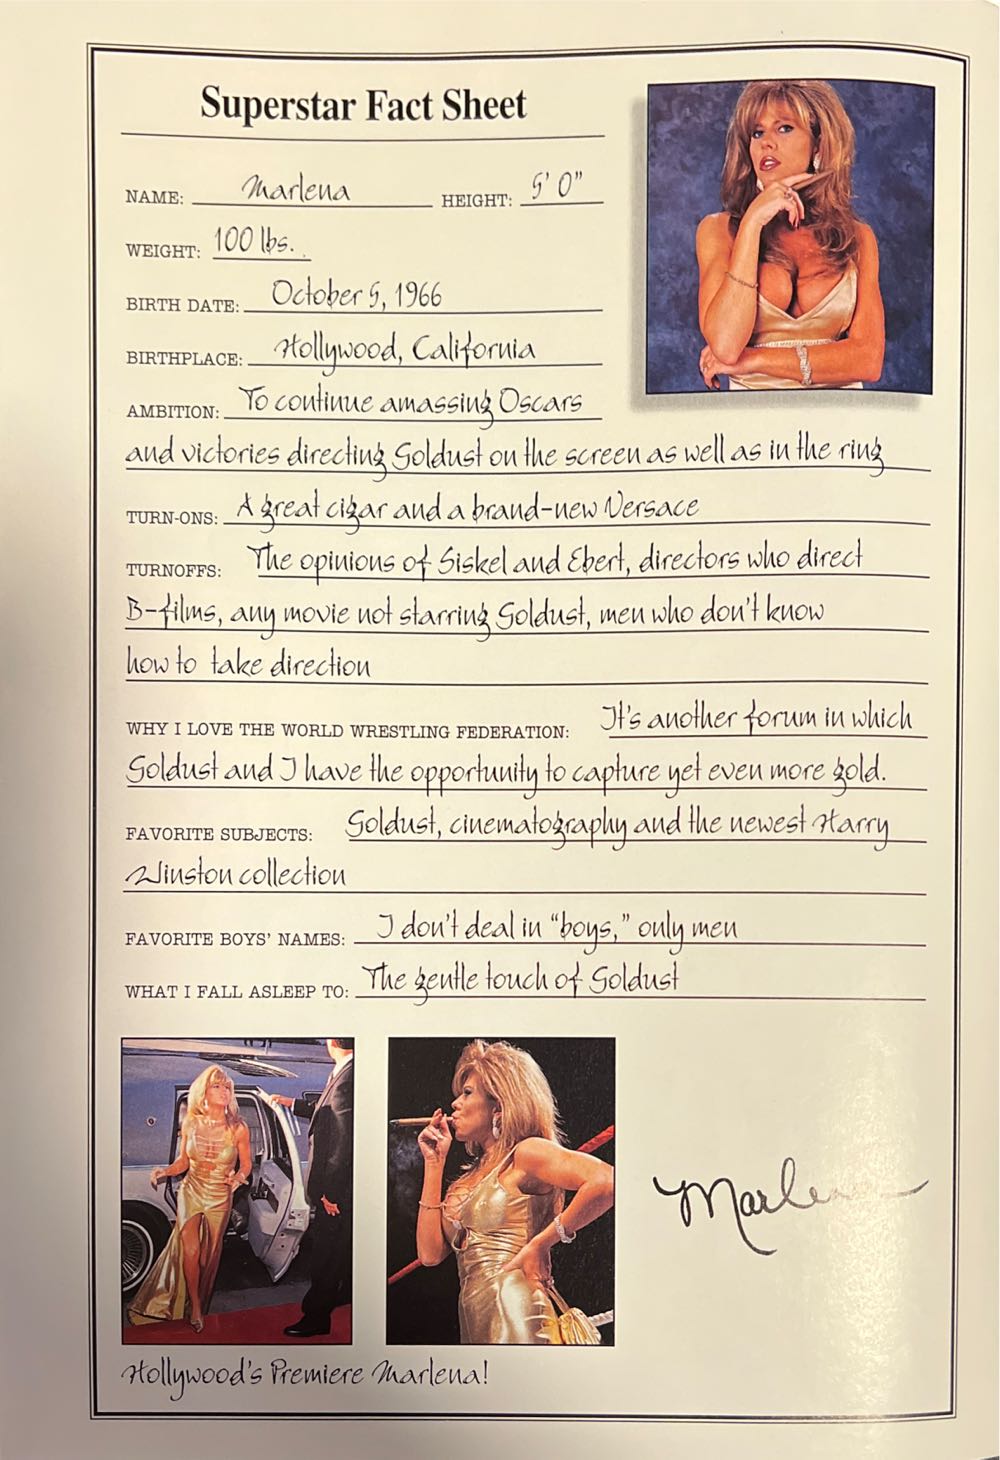 Superstar Fact Sheet
NAME: Marlena HEIGHT: 5' 0"
WEIGHT: 100 lbs.
BIRTH DATE: October 5, 1966
BIRTHPLACE: Hollywood, California
AMBITION: To continue amassing Oscars
and victories directing Goldust on the screen as well as in the ring
TURN-ONS: A great cigar and a brand-new Versace
TURNOFFS: The opinions of Siskel and Ebert, directors who direct
B-films, any movie not starring Goldust, men who don't know
how to take direction
WHY I LOVE THE WORLD WRESTLING FEDERATION: It's another forum in which
Goldust and I have the opportunity to capture yet even more gold.
FAVORITE SUBJECTS: Goldust, cinematography and the newest Harry
Winston collection
FAVORITE BOYS' NAMES: I don't deal in "boys," only men
WHAT I FALL ASLEEP TO: The gentle touch of Goldust
Marlena
Hollywood's Premiere Marlena!